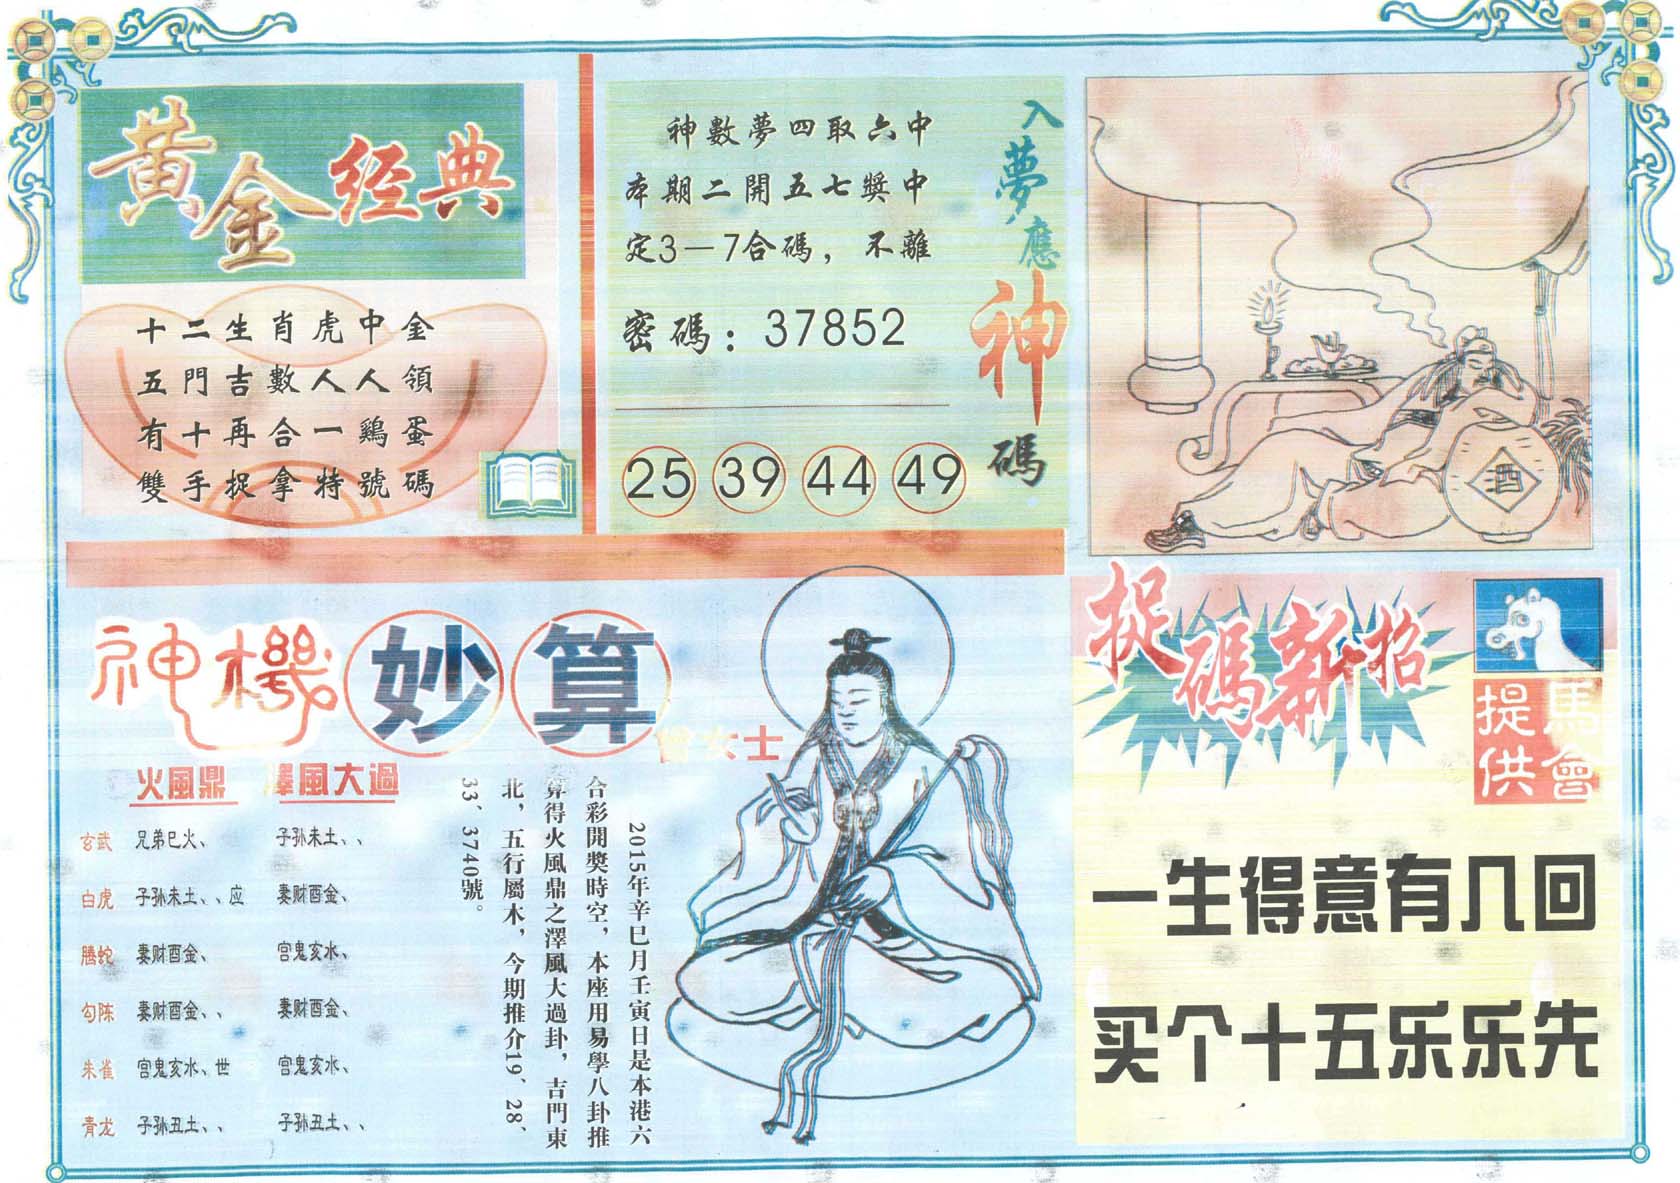 黄金经典
十二生肖虎中金
五門吉數人人領
有十再合一鷄蛋
雙手捉拿特號碼
神數夢四取六中
本期二開五七獎中
定3—7合碼，不離
密碼：37852
25 39 44 49
入夢應神碼
酒
神機妙算
女士
火風鼎 澤風大過
玄武 兄弟巳火、 子孙未土、、
白虎 子孙未土、、应 妻财酉金、
騰蛇 妻财酉金、 官鬼亥水、
勾陈 妻财酉金、、 妻财酉金、
朱雀 官鬼亥水、世 官鬼亥水、
青龙 子孙丑土、、 子孙丑土、、
2015年辛巳月壬寅日是本港六
合彩開獎時空，本座用易學八卦推
算得火風鼎之澤風大過卦，吉門東
北，五行屬木，今期推介19、28、
33、3740號。
捉碼新招
馬會
提供
一生得意有几回
买个十五乐乐先